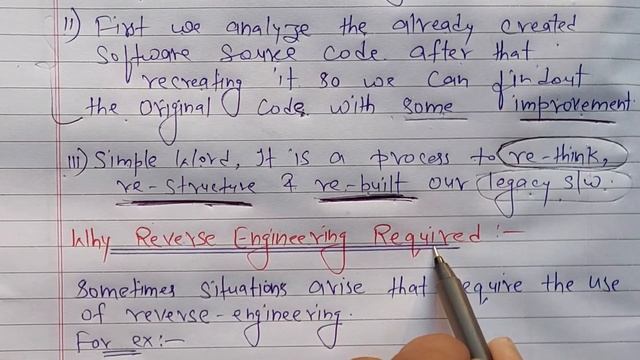 ii) First we analyze the already created
Software Source Code after that
recreating it so we can findout
the original Code with some improvement
iii) Simple Word, It is a process to re-think,
re-structure & re-built our legacy s/w.
Why Reverse Engineering Required :-
Sometimes situations arise that require the use
of reverse-engineering.
For ex:-